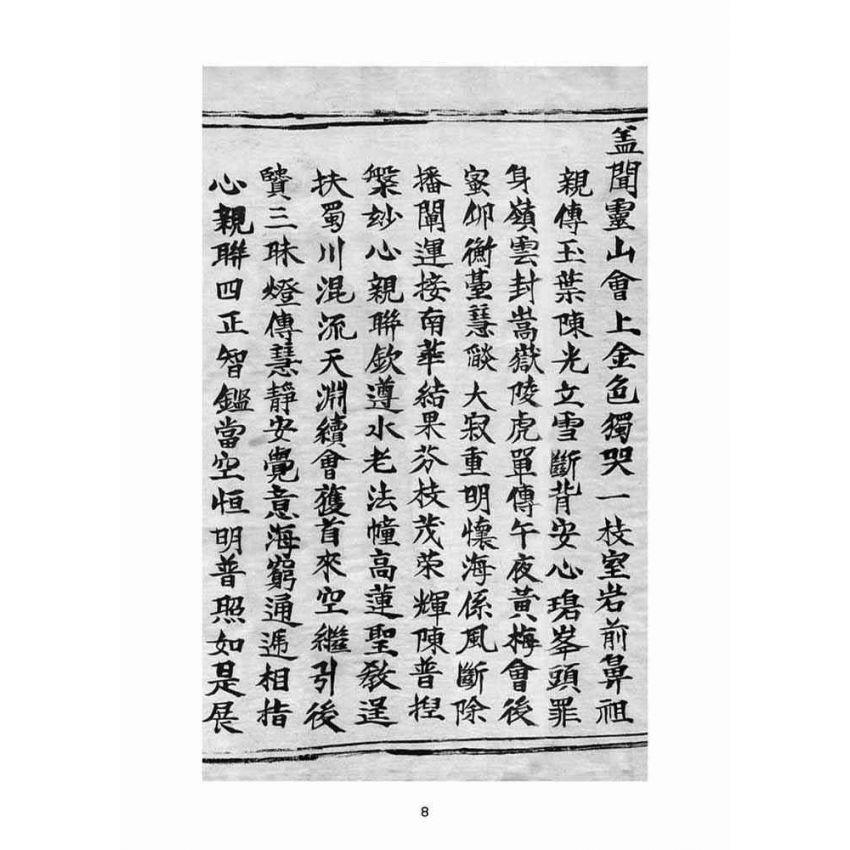 盖聞靈山會上金色獨哭一枝室岩前鼻祖
親傳玉葉陳光立雪斷背安心碧峯頭罪
身嶺雲封嵩嶽陵虎單傳午夜黃梅會後
蜜卬衡臺慧燄大寂重明懷海係風斷除
播闡運接南華結果芬枝茂荣輝陳普揑
槃玅心親聯欽遵水老法幢高蓮聖教逞
扶蜀川混流天淵續會蒦首來空繼引後
三昧燈傳慧靜安覺意海窮通遞相指
心親聯四正智鑑當空恒明普照如是展
8